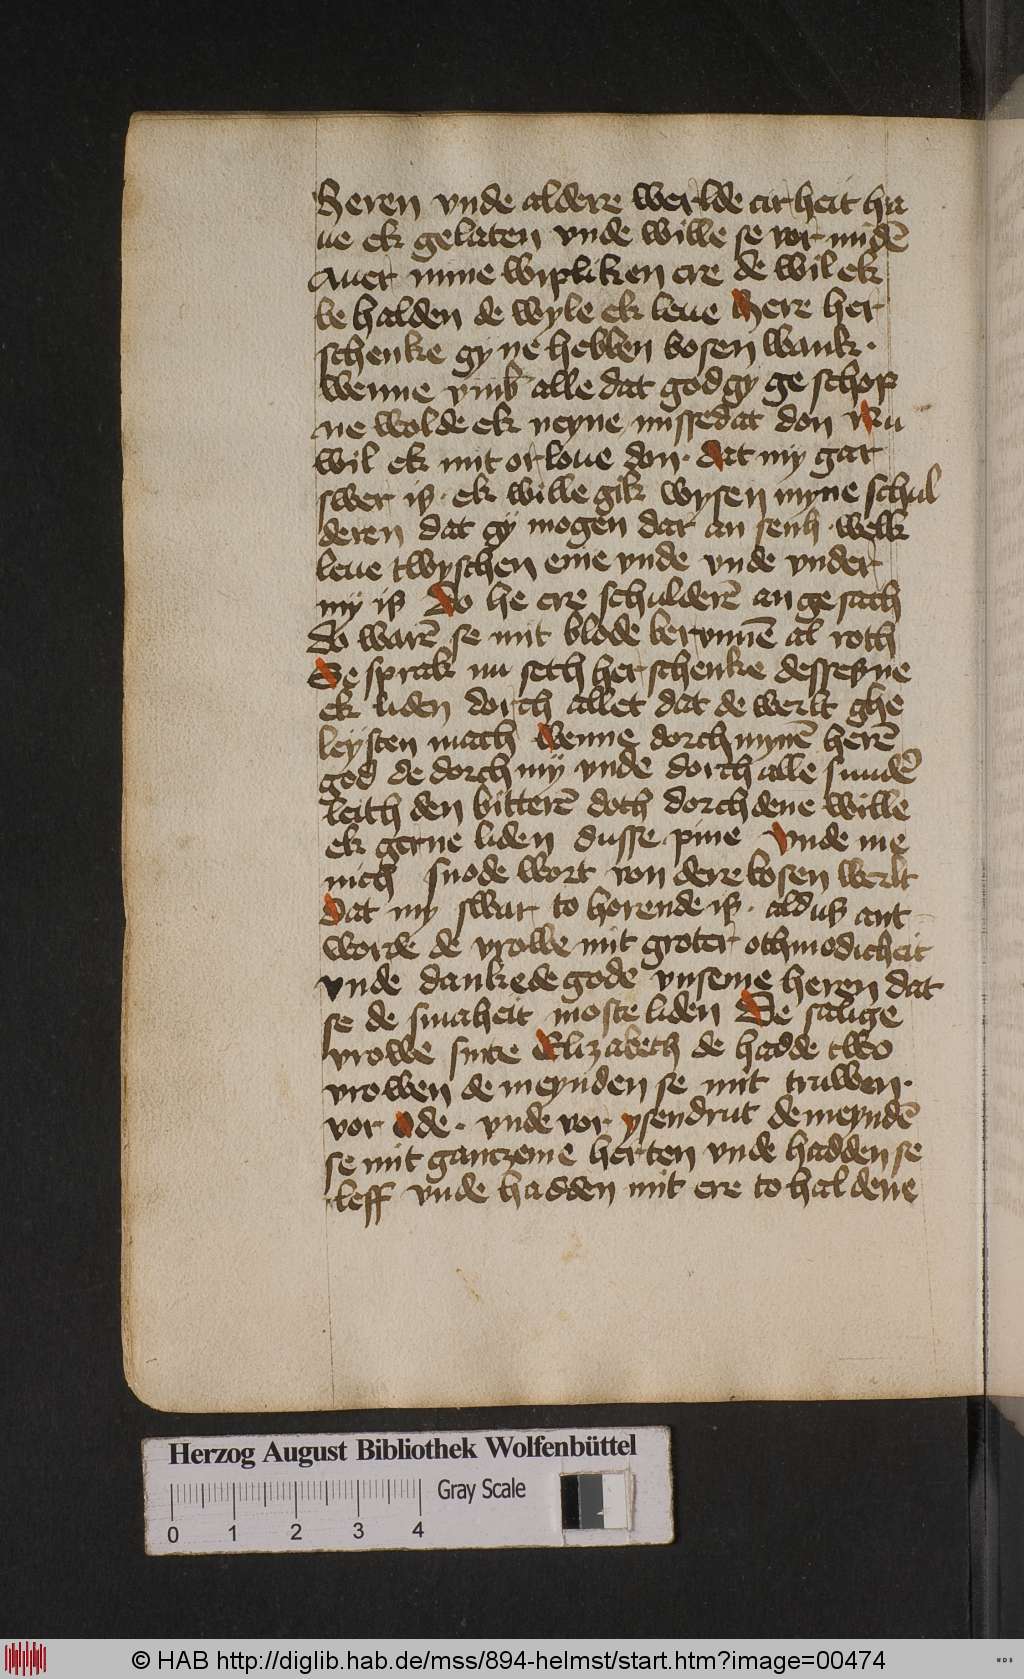 Heren vnde aldere werlde cirheit ha
ue ek gelaten vnde wille se vor midē
Auer mine wipliken ere de wil ek
be halden de wyle ek leue Here her
schenke gy ne hebben bosen wank ·
wenne vmb alle dat god gy ge schop
ne wolde ek neyne missedat don Nu
wil ek mit orloue don · dat my gar
swer is · ek wille gik wysen myne schul
deren dat gy mogen dar an senh · welk
leue twyschen eme vnde vnde vnder
my is Do he ere schulderē an ge sach
do warē se mit blode berunnē al roth
Se sprak nu seth her schenke desse pyne
ek liden dorch allet dat de werlt ghe
leysten mach wenne dorch mynē herē
god de dorch my vnde dorch alle sundē
leith den bitterē doth dorch dene wille
ek gerne liden dusse pine Vnde me
nich snode wort von dere bosen werlt
Dat my swar to horende is · aldus ant
worde de vrowe mit groter othmodicheit
vnde dankede gode vnseme heren dat
se de smaheit moste liden De salige
vrowe sinte Elizabeth de hadde two
vrowen de meynden se mit truwen ·
vor Ode · vnde vor ysendrut de meyndē
se mit ganczeme herten vnde hadden se
leff vnde hadden mit ere to haldene
Herzog August Bibliothek Wolfenbüttel
Gray Scale
0 1 2 3 4
© HAB http://diglib.hab.de/mss/894-helmst/start.htm?image=00474